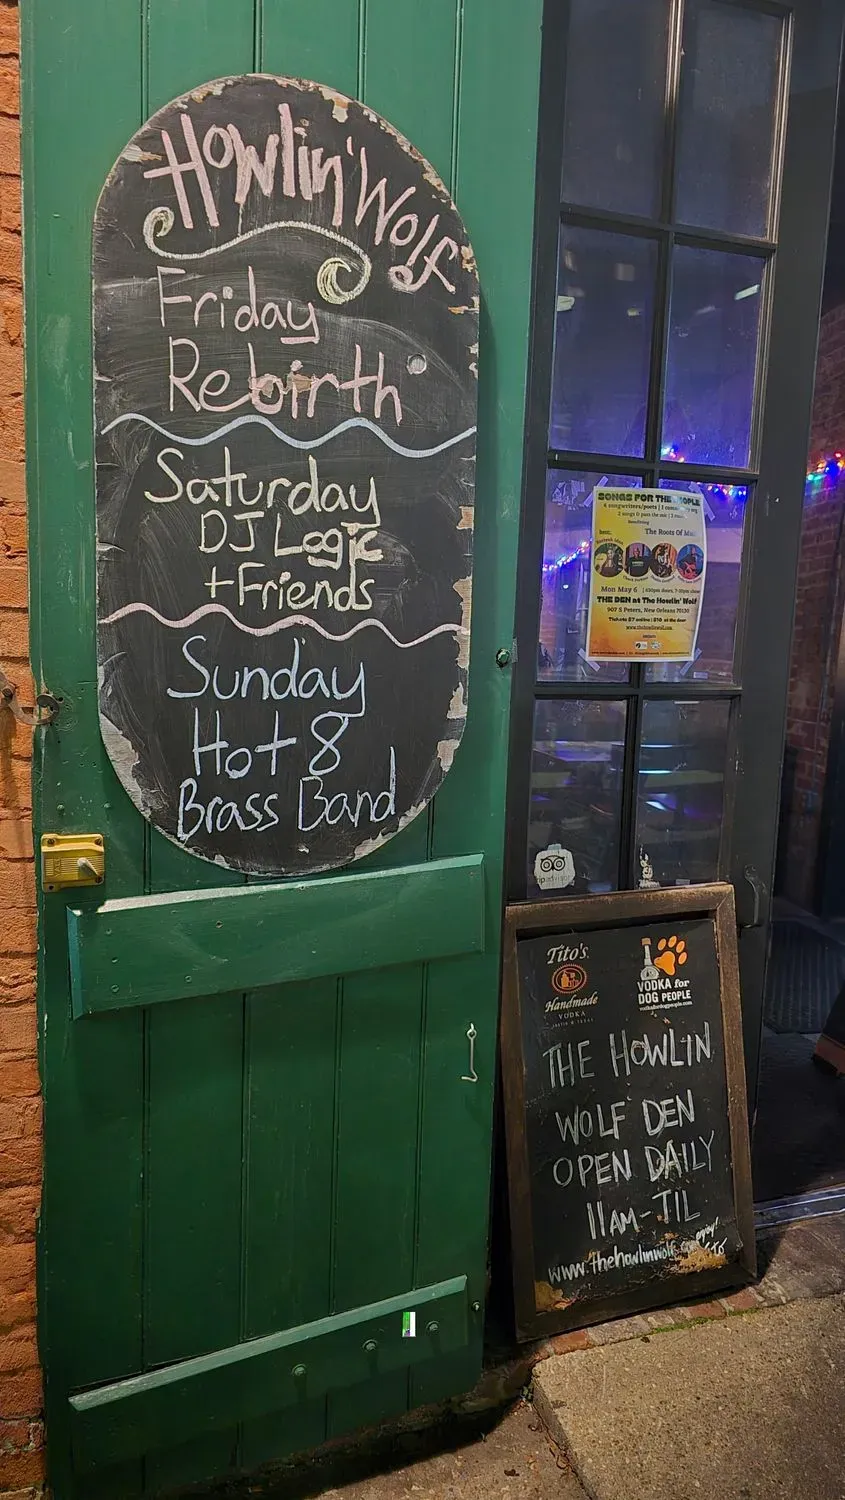 Howlin' Wolf
Friday
Rebirth
Saturday
DJ Logic
+Friends
Sunday
Hot 8
Brass Band
SONGS FOR THE PEOPLE
4 songwriters/poets
2 songs & pass the mic
benefiting
The Roots Of
Mon May 6
THE DEN at The Howlin' Wolf
907 S Peters, New Orleans 70130
Tickets $7 online $10 at the door
www.thehowlinwolf.com
tripadvisor
Tito's
Handmade
VODKA
AUSTIN TEXAS
VODKA for
DOG PEOPLE
vodkafordogpeople.com
THE HOWLIN
WOLF DEN
OPEN DAILY
11AM-TIL
www.thehowlinwolf